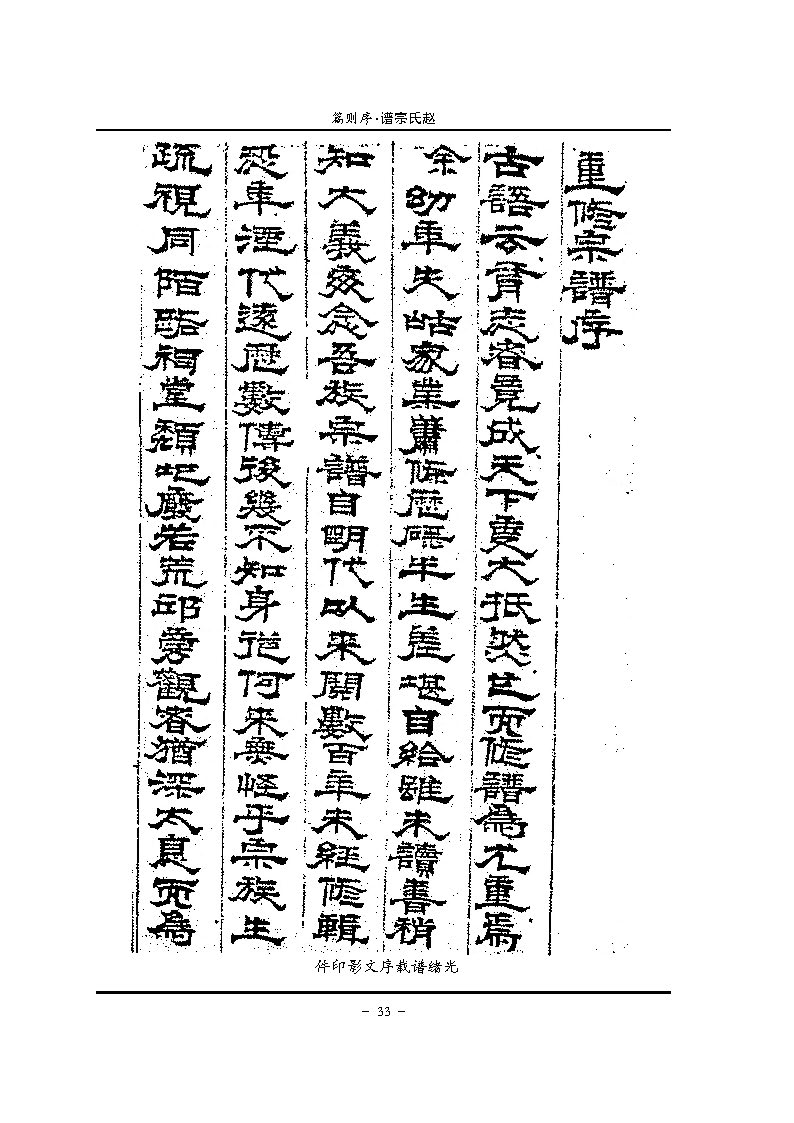 赵氏宗谱·序则篇
重修宗譜序
古語云有志者竟成天下事大抵然也而修譜為尤重焉
余幼年失怙家業蕭條歷碌半生差堪自給雖未讀書稍
知大義爰念吾族宗譜自明代以來閱數百年未經修輯
恐年湮代遠歷數傳後幾不知身從何來無怪乎宗族生
疏視同陌路祠堂頹圮廢若荒邱旁觀者猶深太息而為
光绪谱载序文影印件
- 33 -